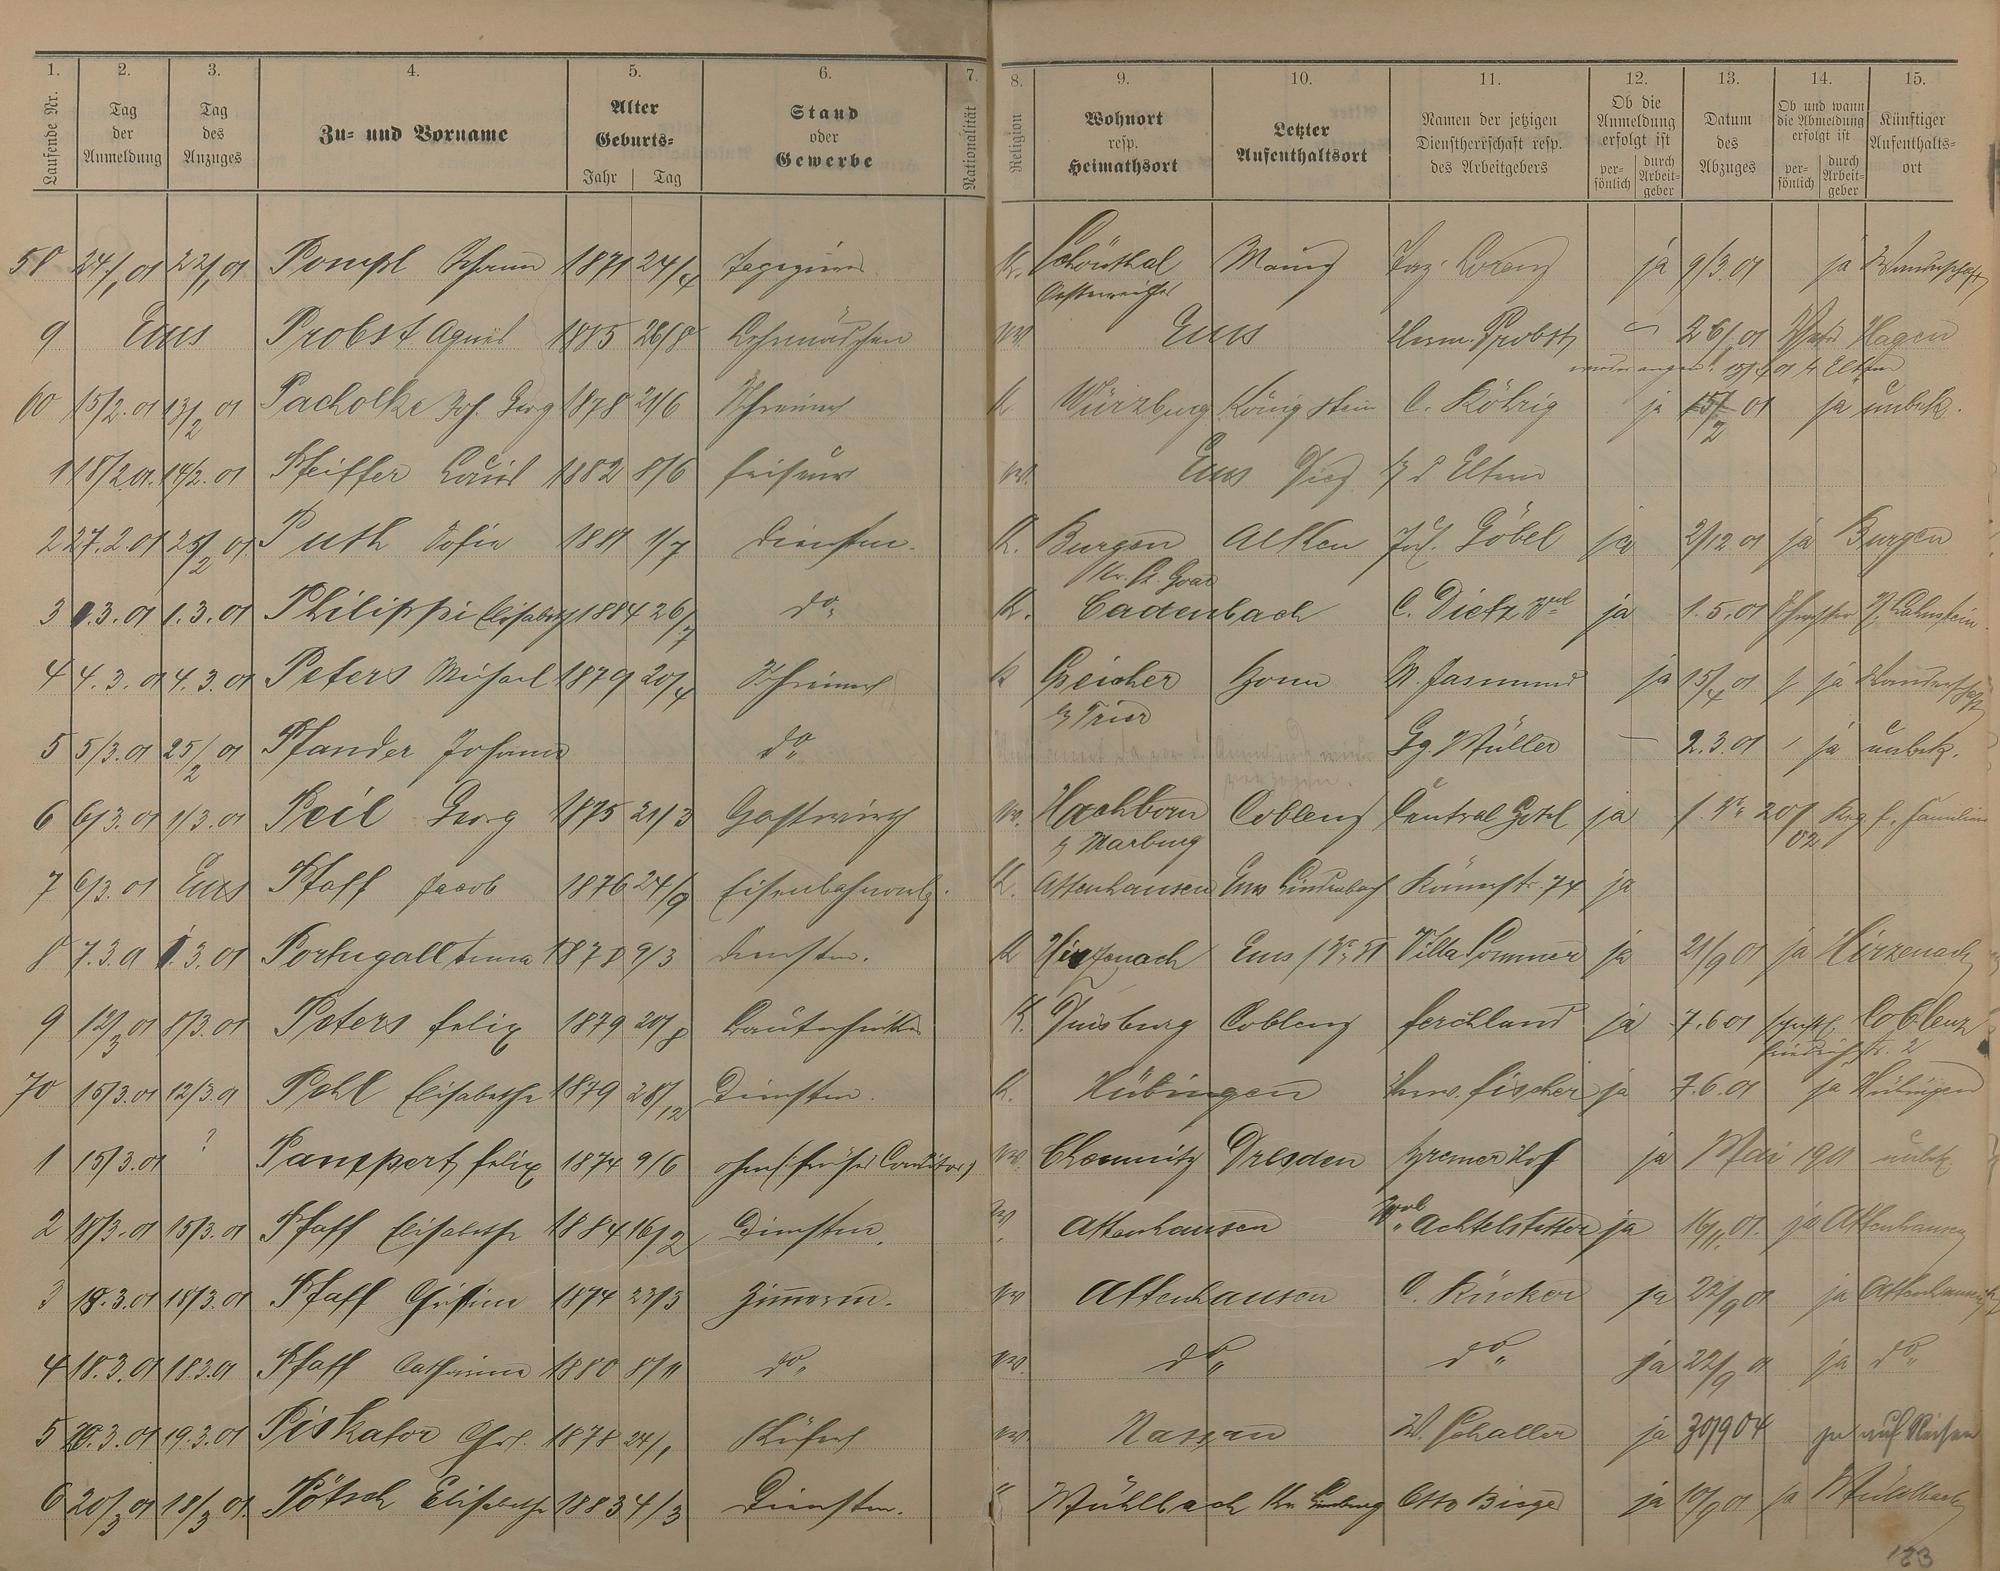 1. 2. 3. 4. 5. 6. 7. 8. 9. 10. 11. 12. 13. 14. 15.
Laufende Nr. Tag der Anmeldung Tag des Anzuges Zu- und Vorname Alter Geburts- Jahr Tag Stand oder Gewerbe Nationalität Religion Wohnort resp. Heimathsort Letzter Aufenthaltsort Namen der jetzigen Dienstherrschaft resp. des Arbeitgebers Ob die Anmeldung erfolgt ist persönlich durch Arbeitgeber Datum des Abzuges Ob und wann die Abmeldung erfolgt ist persönlich durch Arbeitgeber Künftiger Aufenthaltsort
58 24/1 01 22/1 01 Pompl Johann 1871 24/4 Tapezierer K. Schönthal Mainz Lorenz ja 9/3.01 ja Wanderschaft
Oesterreich
9 Ems Probst Agnes 1885 26/8 Lehrmädchen ev. Ems Herm. Probst 26/1 01 Hagen
Eltern
60 15/2.01 13/2 01 Pacholke Joh. Georg 1878 21/6 Schreiner K Würzburg Königstein C. Röhrig ja 15/2 01 ja unbek.
1 18/2.01. 14/2.01 Pfeiffer Louis 1882 8/6 Friseur ev. Ems Diez b/d Eltern
2 27.2.01 25/2 01 Puth Sofie 1881 1/7 Dienstm. K. Burgen Alken Jos. Göbel ja 2/12 01 ja Burgen
Kr. St. Goar
3 1.3.01 1.3.01 Philippi Elisabeth 1884 26/7 do. K. Cadenbach C. Dietz Wwe ja 1.5.01 N. Lahnstein
4 4.3.01 4.3.01 Peters Michael 1879 20/4 Schreiner K Greicher Honn M. Jasmund ja 15/4 01 ja Wanderschaft
b/ Trier
5 5/3.01 25/2 01 Pfander Johann do Gg. Müller — 2.3.01 ja unbek.
verzogen.
6 6/3.01 1/3.01 Peil Georg 1875 21/3 Gastwirth ev. Hachborn Coblenz Central Hotel ja 20/1 02 Reg. f. Familien
b/ Marburg
7 6/3.01 Ems Pfaff Jacob 1876 24/9 K. Attenhausen Ems Lindenbach Römerstr. 74 ja
8 7.3.01 1.3.01 Portugall Anna 1878 9/3 Dienstm. K Hirzenach Ems Villa Sommer ja 21/9 01 ja Hirzenach
9 12/3 01 8/3.01 Peters Felix 1879 20/8 Bautechniker K. Duisburg Coblenz Ferchland ja 7.6 01 Coblenz
Friedrichstr. 2
70 15/3.01 12/3.01 Pehl Elisabeth 1879 28/12 Dienstm. K. Hübingen Herm. Fischer ja 7.6.01 ja Hübingen
1 15/3.01 ? Pamppert Felix 1874 9/6 ohne (früher Conditor) ev. Chemnitz Dresden Bremer Hof ja Mai 1901 unbek.
2 18/3.01 15/3.01 Pfaff Elisabeth 1884 16/2 Dienstm. Attenhausen Achtelstetter ja 16/11 01. ja Attenhausen
3 18.3.01 18/3.01 Pfaff Christine 1874 23/3 Zimmerm. ev Attenhausen C. Rücker ja 22/9 01 ja Attenhausen
4 18.3.01 18.3.01 Pfaff Catharina 1880 8/11 do ev. do do ja 22/9 01 ja do
5 20.3.01 19.3.01 Piskator Chr. 1878 24/1 Küfer ev. Nassau W. Schaller ja 30/9 04 ja auf Reisen
6 20/3 01 18/3 01. Pötsch Elisabeth 1883 4/3 Dienstm. " Mühlbach Kr. Limburg Otto Binge ja 10/9 01 ja Mühlbach
123